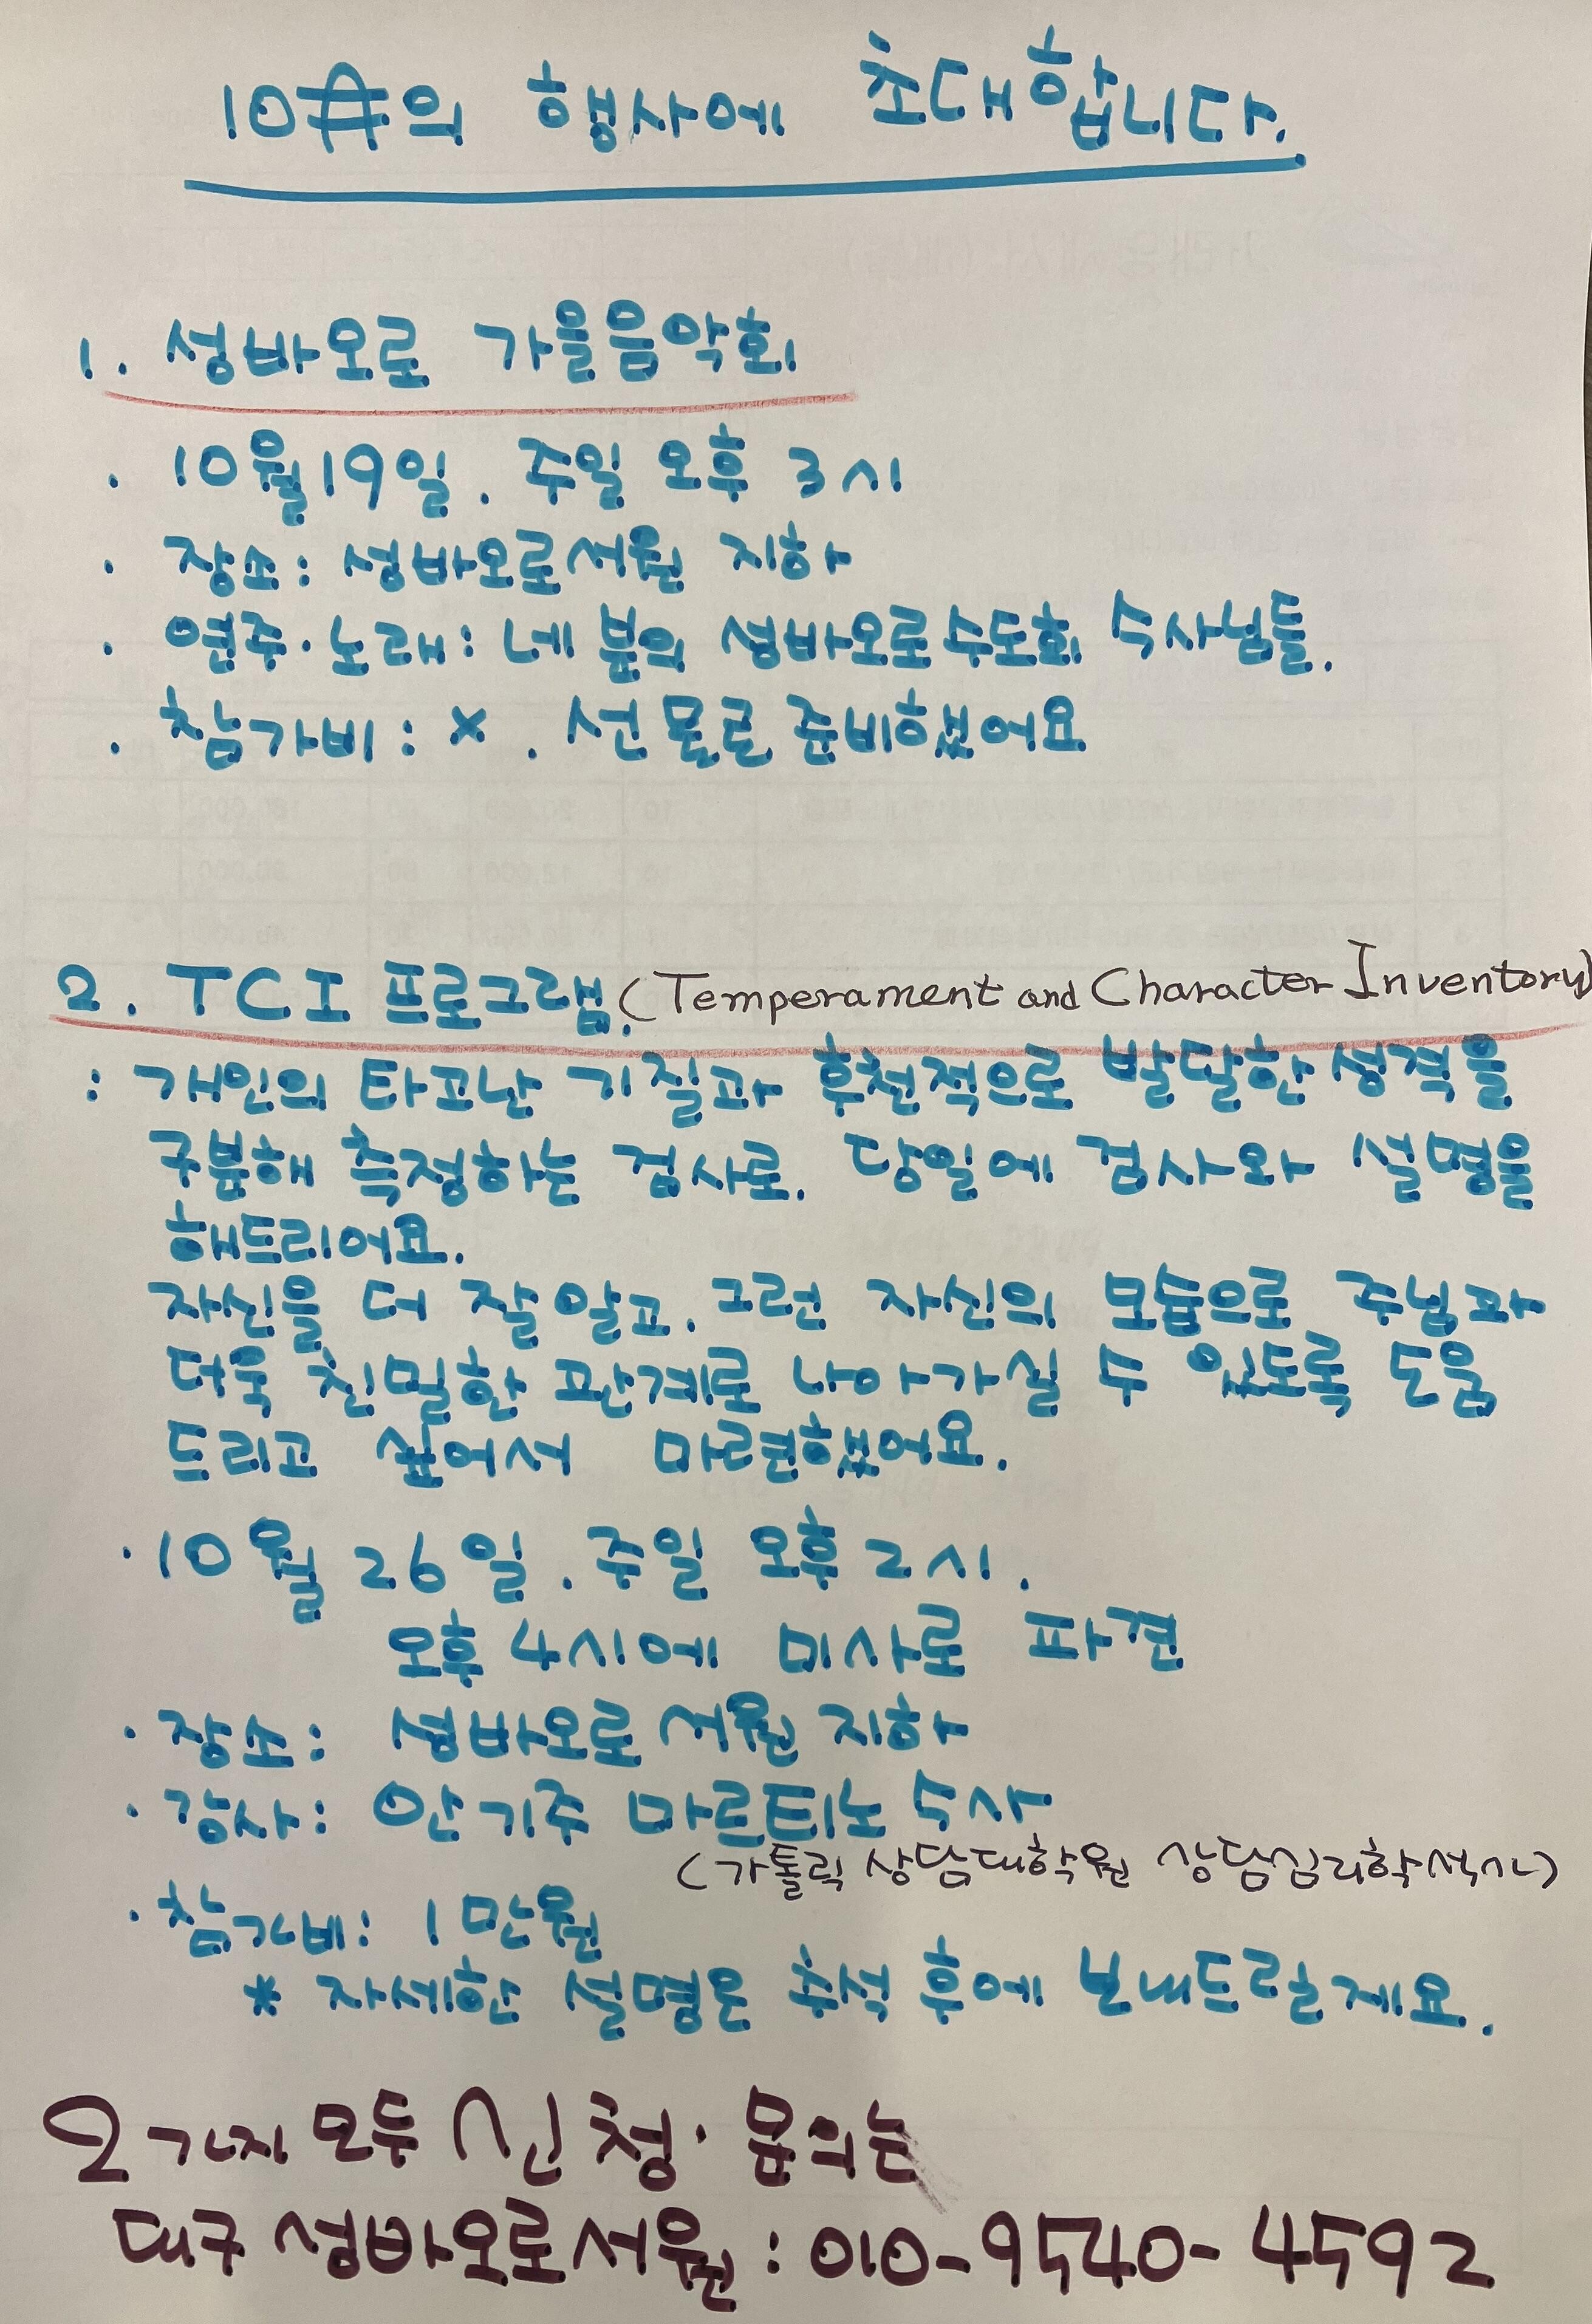 10月의 행사에 초대합니다.
1. 성바오로 가을음악회
· 10월19일. 주일 오후 3시
· 장소: 성바오로서원 지하
· 연주·노래: 네 분의 성바오로수도회 수사님들.
· 참가비: × . 선물로 준비했어요
2. TCI 프로그램. (Temperament and Character Inventory)
: 개인의 타고난 기질과 후천적으로 발달한 성격을
구분해 측정하는 검사로. 당일에 검사와 설명을
해드리어요.
자신을 더 잘 알고. 그런 자신의 모습으로 주님과
더욱 친밀한 관계로 나아가실 수 있도록 도움
드리고 싶어서 마련했어요.
· 10월 26일. 주일 오후 2시.
오후 4시에 미사로 파견
· 장소: 성바오로 서원 지하
· 강사: 안기주 마르티노 수사
(가톨릭 상담대학원 상담심리학석사)
· 참가비: 1만원
* 자세한 설명은 추석 후에 보내드릴게요.
2가지 모두 신청·문의는
대구 성바오로서원 : 010-9540-4592